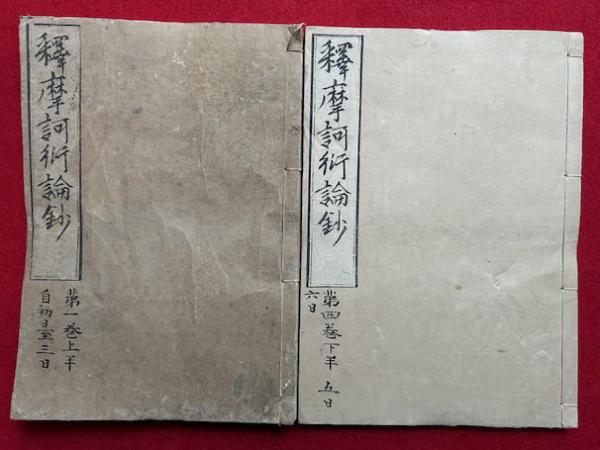 釋摩訶衍論鈔
第一巻上半
自初日至三日
釋摩訶衍論鈔
第四巻下半 五日
六日